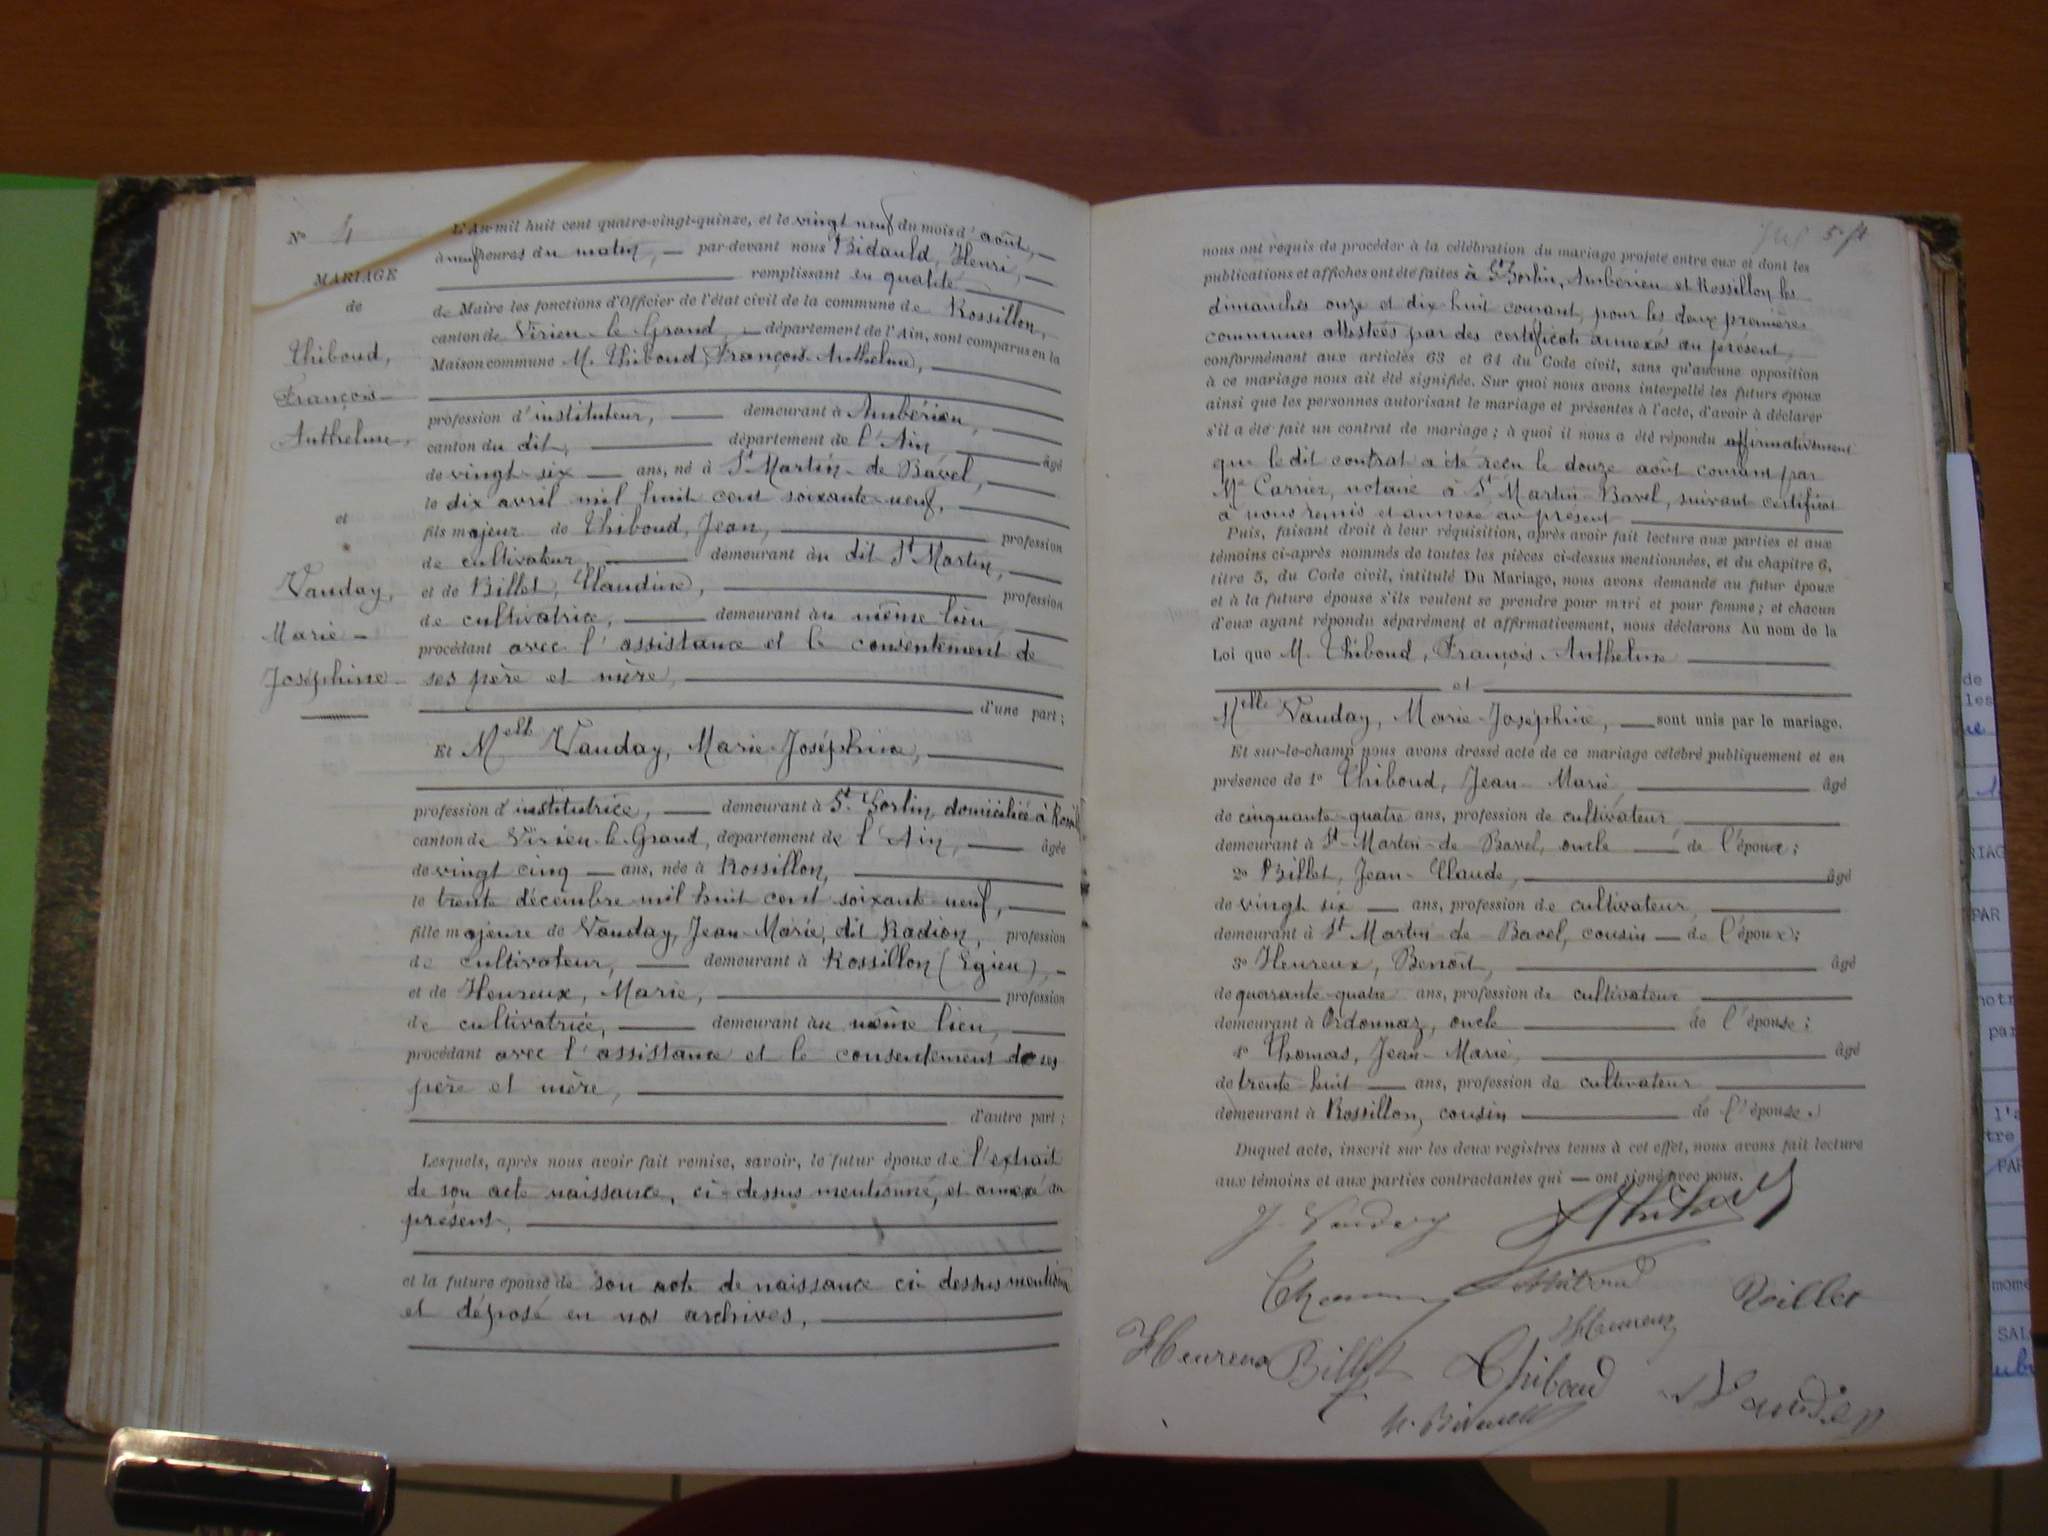 N° 4
MARIAGE
de
Thiboud,
François-
Anthelme,
et
Vauday,
Marie-
Joséphine
L'An mil huit cent quatre-vingt-quinze, et le vingt neuf du mois d'août,
à neuf heures du matin, par-devant nous Bidauld, Henri,
remplissant en qualité
de Maire les fonctions d'Officier de l'état civil de la commune de Rossillon,
canton de Virieu-le-Grand, département de l'Ain, sont comparus en la
Maison commune M. Thiboud, François-Anthelme,
profession d'instituteur, demeurant à Ambérieu,
canton du dit, département de l'Ain, âgé
de vingt-six ans, né à St Martin-de-Bavel,
le dix avril mil huit cent soixante-neuf,
fils majeur de Thiboud, Jean, profession
de cultivateur, demeurant au dit St Martin,
et de Billet, Claudine, profession
de cultivatrice, demeurant au même lieu
procédant avec l'assistance et le consentement de
ses père et mère,
d'une part;
Et Melle Vauday, Marie-Joséphine,
profession d'institutrice, demeurant à St Sorlin, domiciliée à
canton de Virieu-le-Grand, département de l'Ain, âgée
de vingt cinq ans, née à Rossillon,
le trente décembre mil huit cent soixante-neuf,
fille majeure de Vauday, Jean-Marie, dit Radion, profession
de cultivateur, demeurant à Rossillon (Egieu),
et de Heureux, Marie, profession
de cultivatrice, demeurant au même lieu,
procédant avec l'assistance et le consentement de ses
père et mère,
d'autre part;
Lesquels, après nous avoir fait remise, savoir, le futur époux de l'extrait
de son acte naissance, ci-dessus mentionné, et annexé au
présent,
et la future épouse de son acte de naissance ci-dessus mentionné
et déposé en nos archives,
nous ont requis de procéder à la célébration du mariage projeté entre eux et dont les
publications et affiches ont été faites à St Sorlin, Ambérieu et Rossillon les
dimanches onze et dix-huit courant, pour les deux premières
communes attestées par des certificats annexés au présent,
conformément aux articles 63 et 64 du Code civil, sans qu'aucune opposition
à ce mariage nous ait été signifiée. Sur quoi nous avons interpellé les futurs époux
ainsi que les personnes autorisant le mariage et présentes à l'acte, d'avoir à déclarer
s'il a été fait un contrat de mariage; à quoi il nous a été répondu affirmativement
que le dit contrat a été reçu le douze août courant par
Me Carrier, notaire à St Martin-Bavel, suivant certificat
à nous remis et annexé au présent
Puis, faisant droit à leur réquisition, après avoir fait lecture aux parties et aux
témoins ci-après nommés de toutes les pièces ci-dessus mentionnées, et du chapitre 6,
titre 5, du Code civil, intitulé Du Mariage, nous avons demandé au futur époux
et à la future épouse s'ils veulent se prendre pour mari et pour femme; et chacun
d'eux ayant répondu séparément et affirmativement, nous déclarons Au nom de la
Loi que M. Thiboud, François-Anthelme
et
Melle Vauday, Marie-Joséphine, sont unis par le mariage.
Et sur-le-champ nous avons dressé acte de ce mariage célébré publiquement et en
présence de 1° Thiboud, Jean-Marie, âgé
de cinquante-quatre ans, profession de cultivateur
demeurant à St-Martin-de-Bavel, oncle de l'époux;
2° Billet, Jean-Claude, âgé
de vingt six ans, profession de cultivateur
demeurant à St Martin-de-Bavel, cousin de l'époux;
3° Heureux, Benoît, âgé
de quarante-quatre ans, profession de cultivateur
demeurant à Ordonnaz, oncle de l'épouse;
4° Thomas, Jean-Marie, âgé
de trente-huit ans, profession de cultivateur
demeurant à Rossillon, cousin de l'épouse.
Duquel acte, inscrit sur les deux registres tenus à cet effet, nous avons fait lecture
aux témoins et aux parties contractantes qui — ont signé avec nous.
J. Vauday
Thiboud
Billet
Heureux
Heureux Billet Thiboud Vauday
H. Bidauld